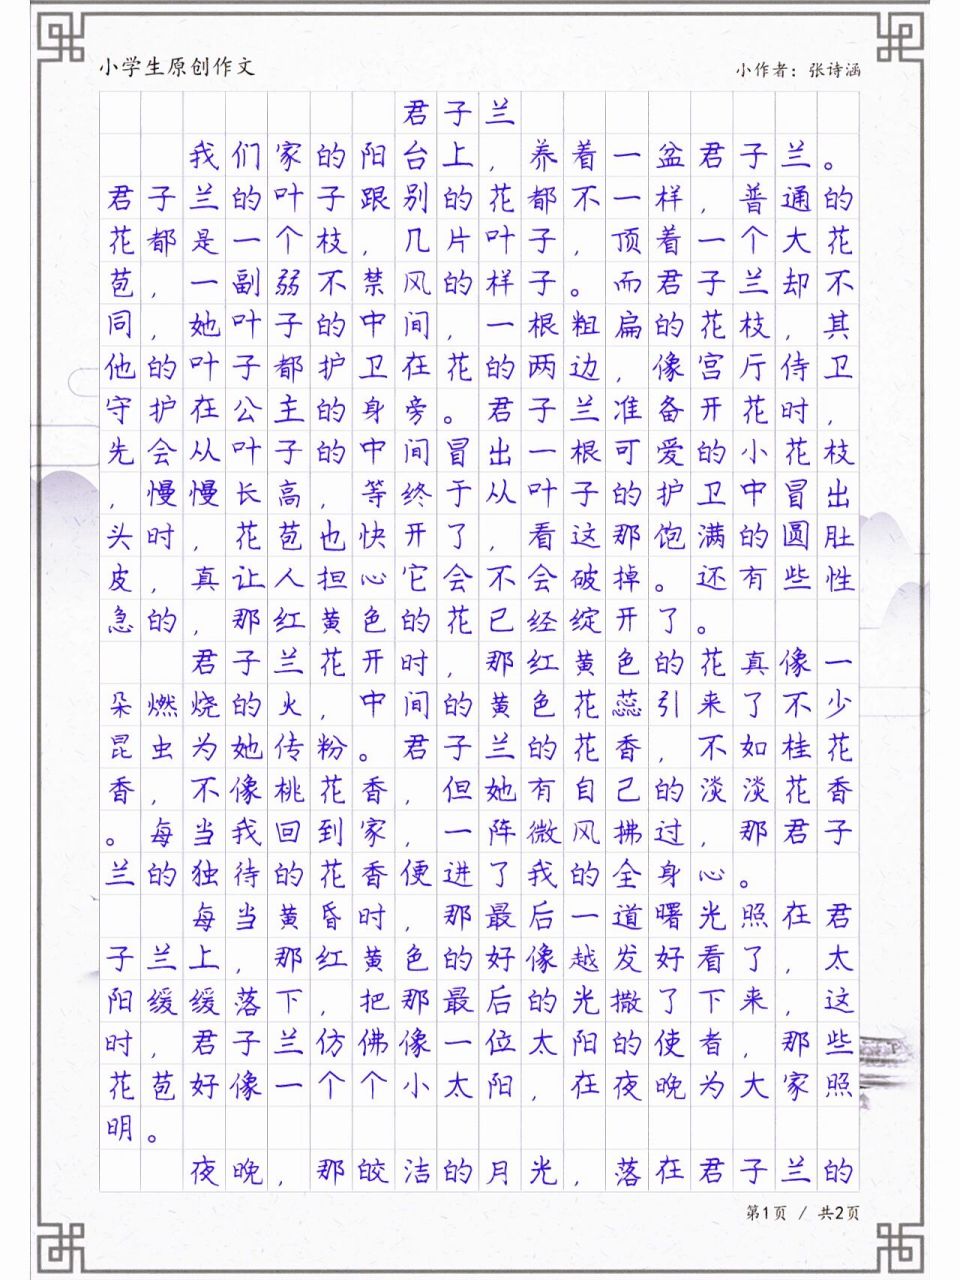 小学生原创作文
小作者：张诗涵
君子兰
我们家的阳台上，养着一盆君子兰。
君子兰的叶子跟别的花都不一样，普通的
花都是一个枝，几片叶子，顶着一个大花
苞，一副弱不禁风的样子。而君子兰却不
同，她叶子的中间，一根粗扁的花枝，其
他的叶子都护卫在花的两边，像宫厅侍卫
守护在公主的身旁。君子兰准备开花时，
先会从叶子的中间冒出一根可爱的小花枝
，慢慢长高，等终于从叶子的护卫中冒出
头时，花苞也快开了，看这那饱满的圆肚
皮，真让人担心它会不会破掉。还有些性
急的，那红黄色的花已经绽开了。
君子兰花开时，那红黄色的花真像一
朵燃烧的火，中间的黄色花蕊引来了不少
昆虫为她传粉。君子兰的花香，不如桂花
香，不像桃花香，但她有自己的淡淡花香
。每当我回到家，一阵微风拂过，那君子
兰的独待的花香便进了我的全身心。
每当黄昏时，那最后一道曙光照在君
子兰上，那红黄色的好像越发好看了，太
阳缓缓落下，把那最后的光撒了下来，这
时，君子兰仿佛像一位太阳的使者，那些
花苞好像一个个小太阳，在夜晚为大家照
明。
夜晚，那皎洁的月光，落在君子兰的
第1页 / 共2页